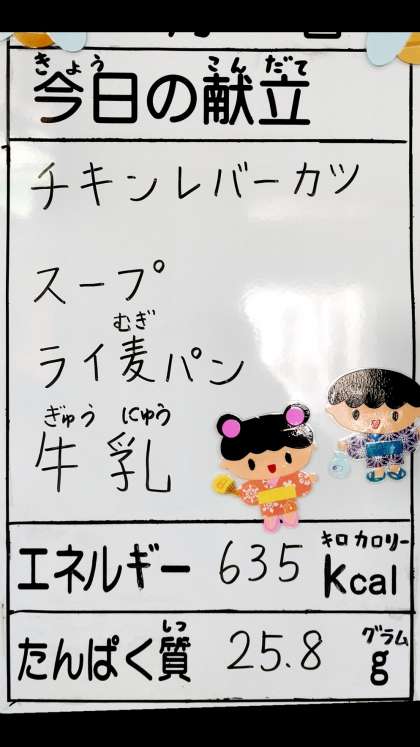 きょう こんだて
今日の献立
チキンレバーカツ
スープ
むぎ
ライ麦パン
ぎゅう にゅう
牛乳
キロカロリー
エネルギー 635 Kcal
しつ グラム
たんぱく質 25.8 g